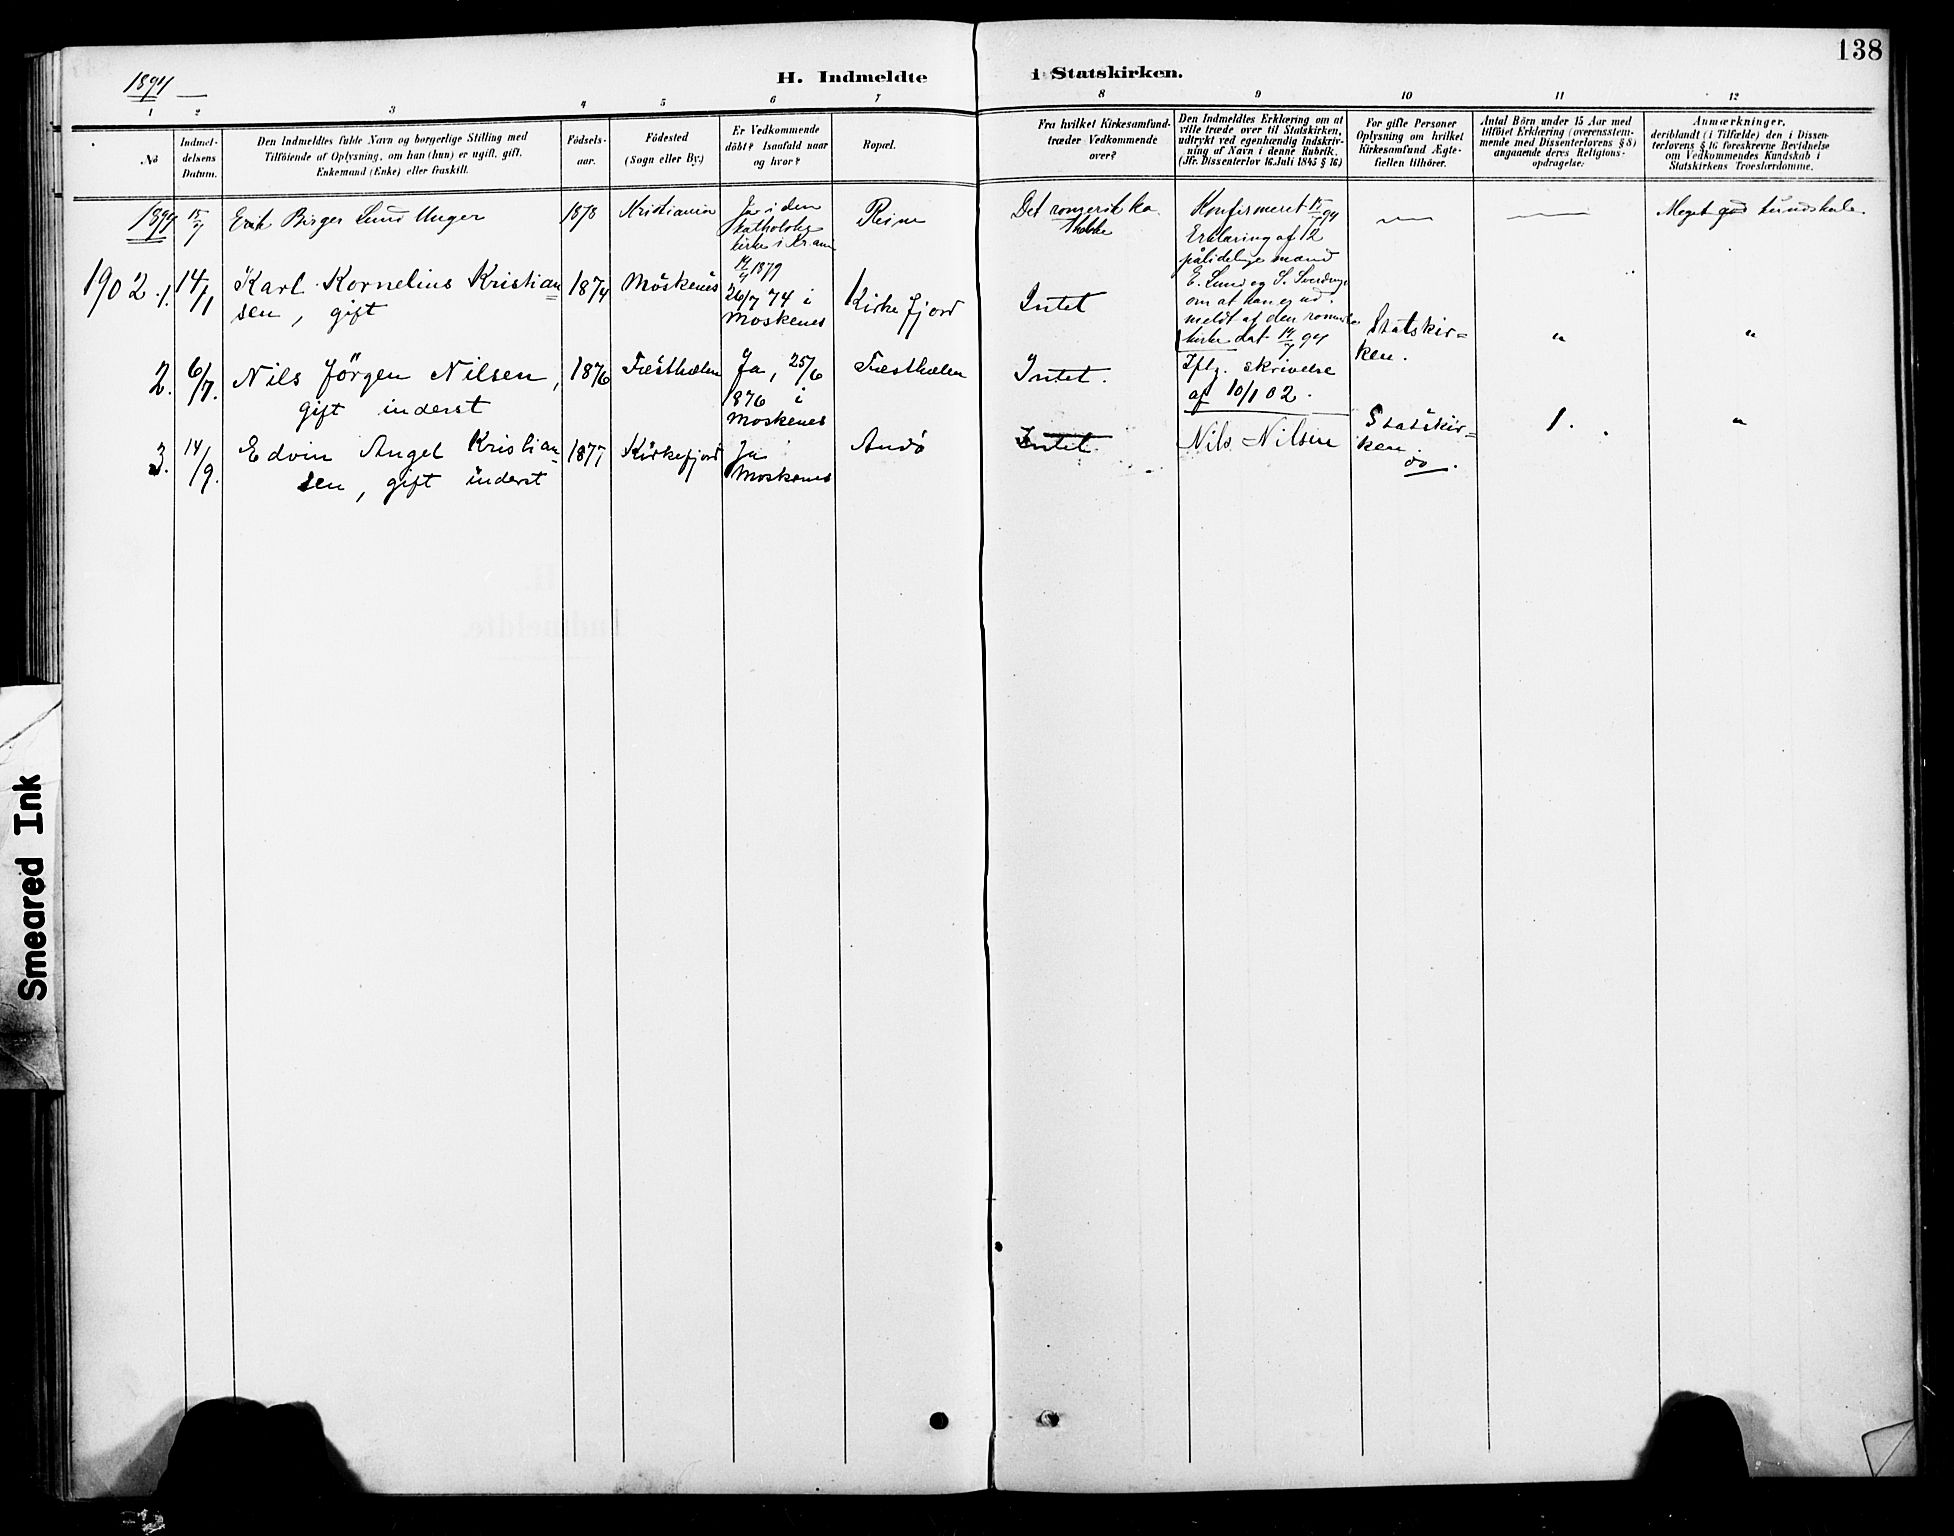 138
1894
H. Indmeldte i Statskirken.
1 2 3 4 5 6 7 8 9 10 11 12
No
Indmel-
delsens
Datum.
Den Indmeldtes fulde Navn og borgerlige Stilling med
Tilföiende af Oplysning, om han (hun) er ugift, gift,
Enkemand (Enke) eller fraskilt.
Födsels-
aar.
Födested
(Sogn eller By.)
Er Vedkommende
döbt? Isaafald naar
og hvor?
Bopæl.
Fra hvilket Kirkesamfund
træder Vedkommende
over?
Den Indmeldtes Erklæring om at
ville træde over til Statskirken,
udtrykt ved egenhændig Indskriv-
ning af Navn i denne Rubrik.
(Jfr. Dissenterlov 16. Juli 1845 § 16)
For gifte Personer
Oplysning om hvilket
Kirkesamfund Ægte-
fællen tilhörer.
Antal Börn under 15 Aar med
tilföiet Erklæring (overensstem-
mende med Dissenterlovens § 8)
angaaende deres Religions-
opdragelse:
Anmærkninger,
deriblandt (i Tilfælde) den i Dissen-
terlovens § 16 foreskrevne Bevidnelse
om Vedkommendes Kundskab i
Statskirkens Troeslærdomme.
15/7
Erik Birger Lund Unger
1878
Kristiania
Ja i den
katholske
kirke i Krania
14/4 1879
Reine
Det romersk ka
tholske
Konfirmeret 15/7 94
Erklæring af 12
pålidelige mænd
om at han er ud-
meldt af den romerske
kirke dat 14/7 94
—
—
Meget god kundskab.
1902. 1.
14/1
Karl Kornelius Kristian=
sen, gift
1874
Moskenes
26/7 74 i
Moskenes
Kirkefjord
Intet
Iflg. skrivelse
af 10/1 02.
Statskir=
ken.
"
"
2.
6/7.
Nils Jörgen Nilsen,
gift inderst
1876
Ja, 25/6
1876 i
Moskenes
Intet.
Nils Nilsen
Statskir=
ken.
1.
"
3.
14/9.
Edvin Angel Kristian=
sen, gift inderst
1877
Kirkefjord
Ja
Moskenes
Andö
Intet.
do.
Smeared Ink